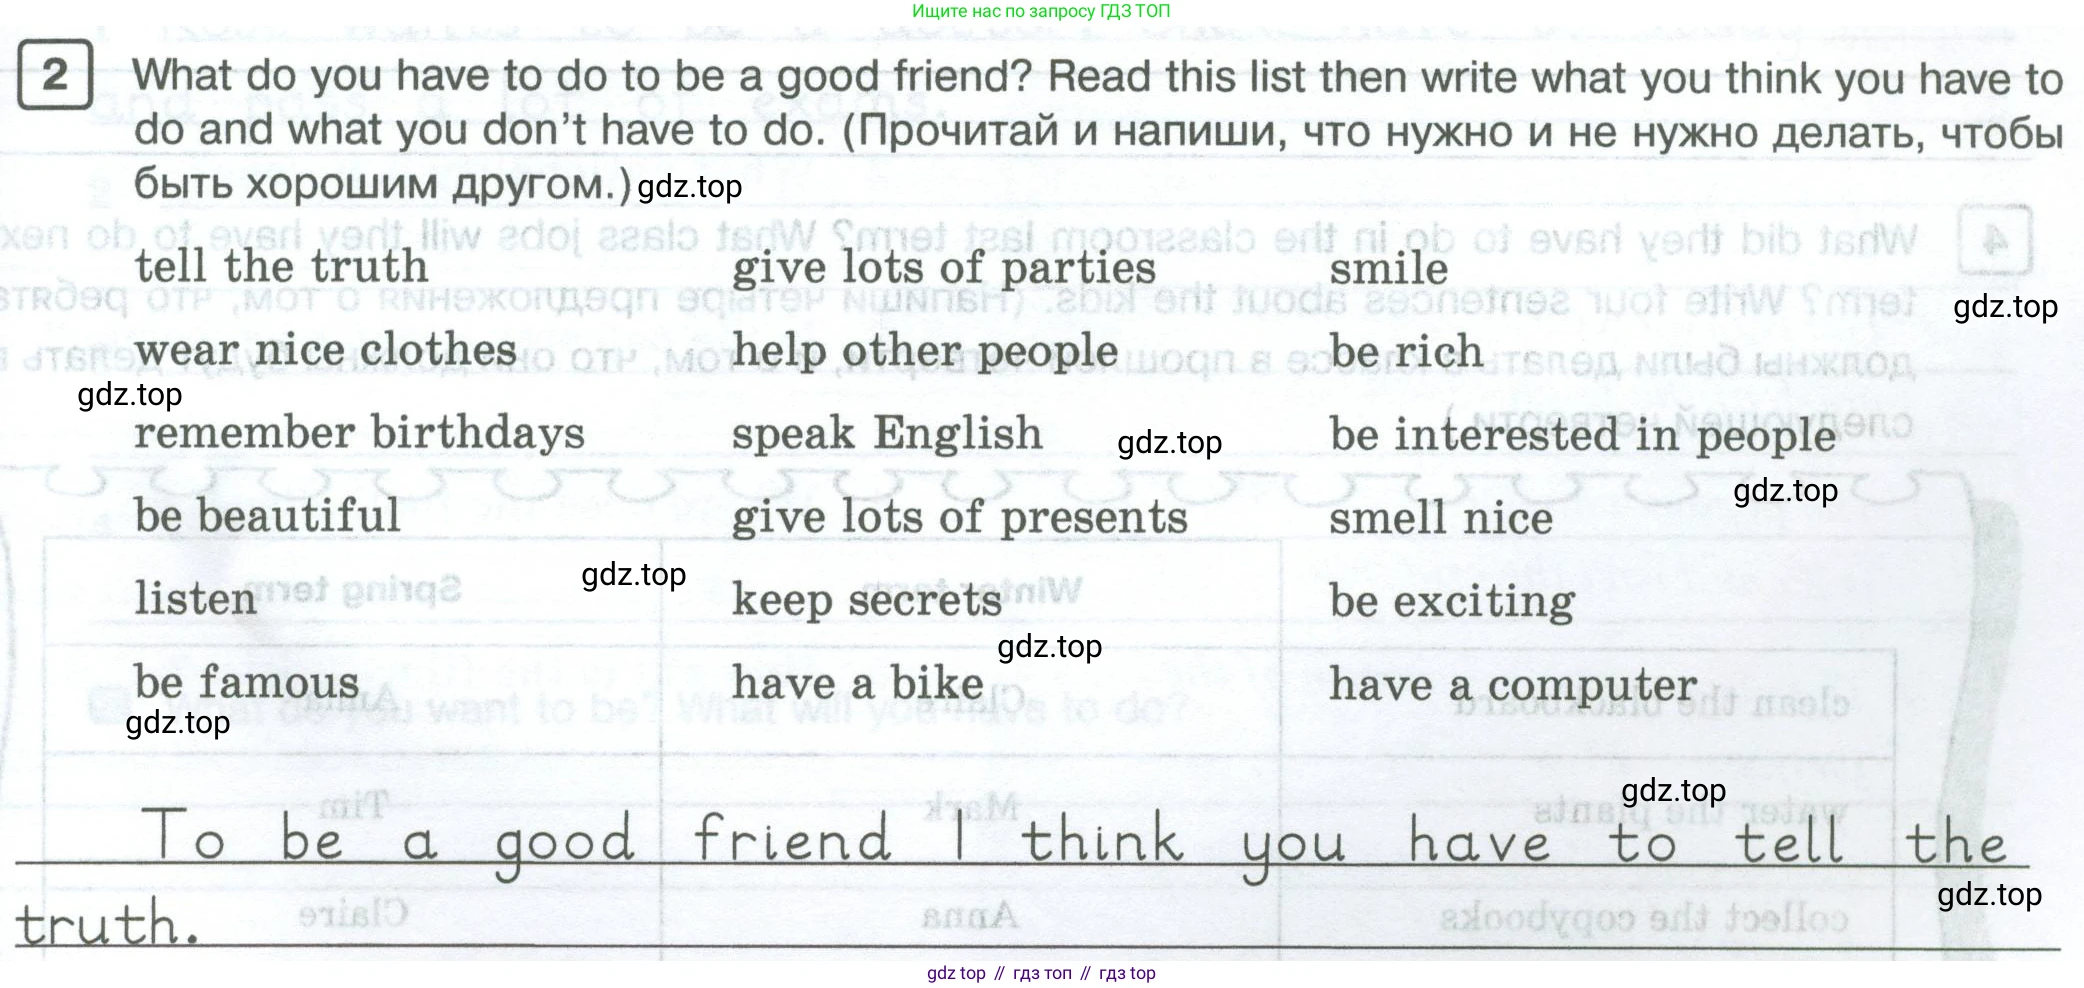 Ищите нас по запросу ГДЗ ТОП
2 What do you have to do to be a good friend? Read this list then write what you think you have to
do and what you don't have to do. (Прочитай и напиши, что нужно и не нужно делать, чтобы
быть хорошим другом.) gdz.top
tell the truth give lots of parties smile
gdz.top
wear nice clothes help other people be rich
gdz.top
remember birthdays speak English gdz.top be interested in people
gdz.top
be beautiful give lots of presents smell nice
gdz.top
listen keep secrets be exciting
gdz.top
be famous have a bike have a computer
gdz.top
gdz.top
To be a good friend I think you have to tell the
gdz.top
truth.
gdz top // гдз топ // гдз top